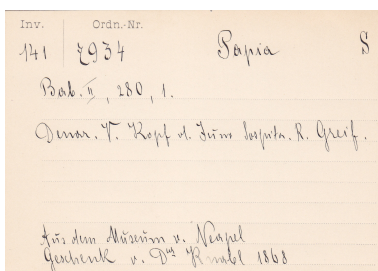 Inv. Ordn.-Nr.
141 7934 Papia S
Bab. II, 280, 1.
Denar. V. Kopf d. Juno Sospita. R. Greif.
Aus dem Museum v. Neapel
Geschenk v. Dr Knabl 1868